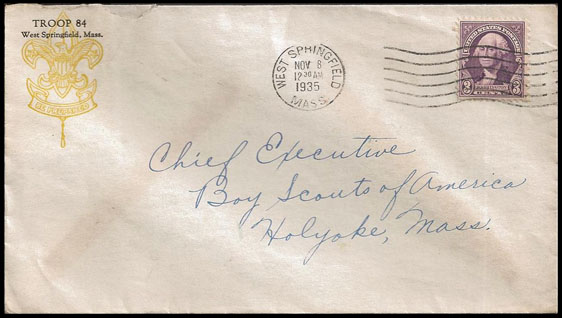 TROOP 84
West Springfield, Mass.
BE PREPARED
WEST SPRINGFIELD
NOV 8
12 30 AM
1935
MASS.
UNITED STATES POSTAGE
3 WASHINGTON 3
Chief Executive
Boy Scouts of America
Holyoke, Mass.